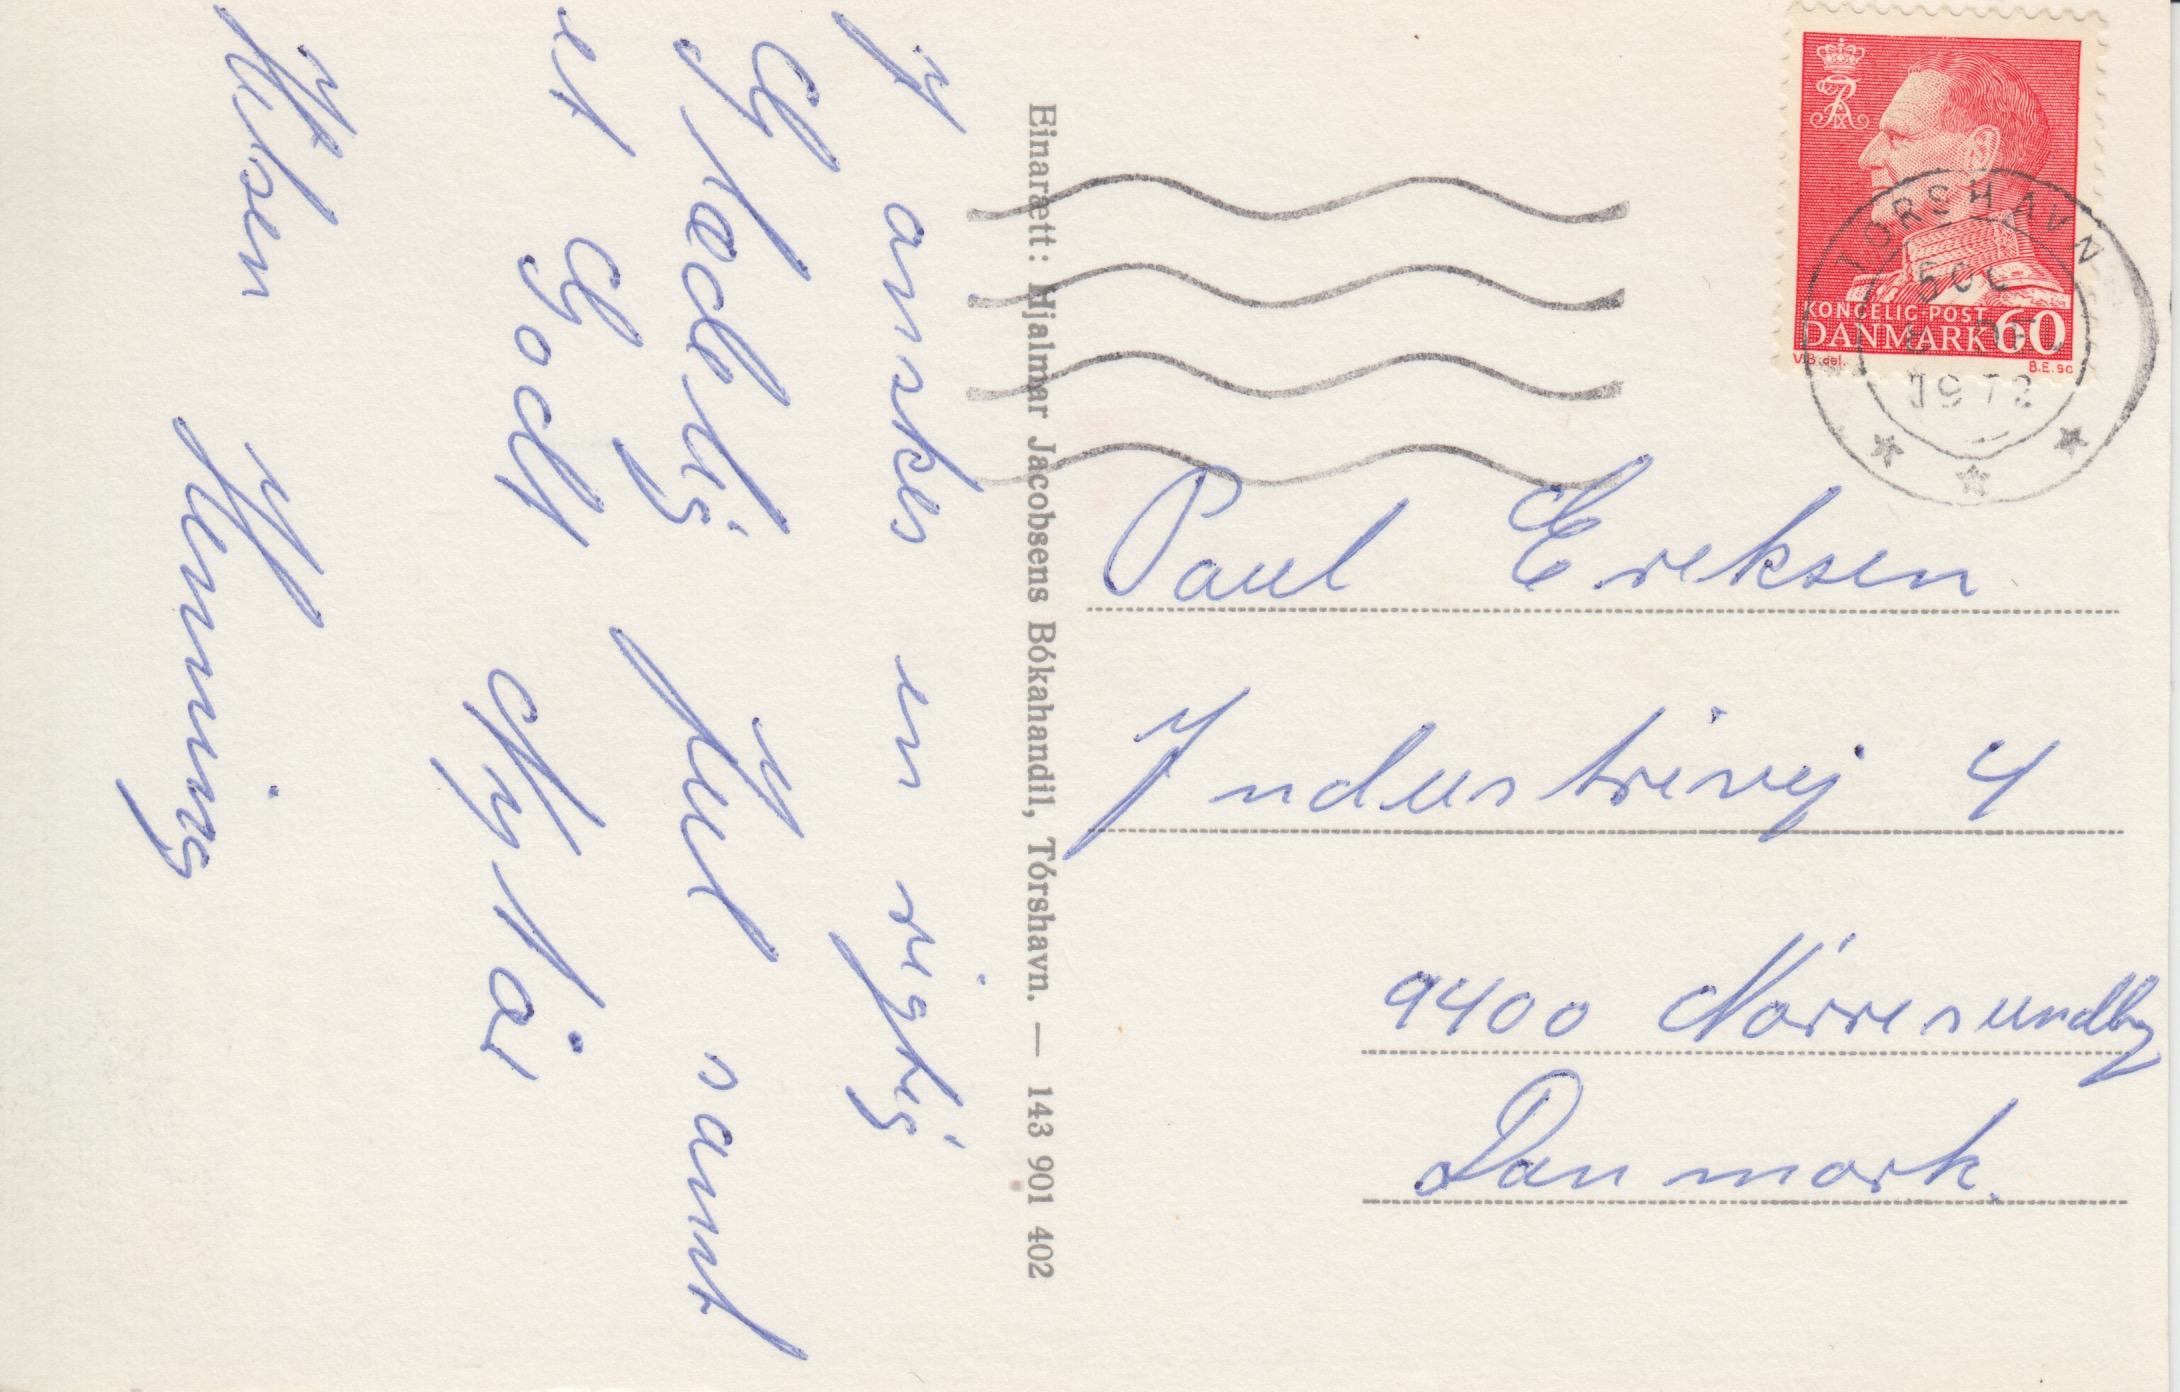 I ønskes en rigtig
Glædelig Jul samt
et Godt Nytår
Hilsen Henning
Einarætt: Hjalmar Jacobsens Bókahandil, Tórshavn. — 143 901 402
KONGELIG POST
DANMARK 60
V.B. del. B.E. sc
TORSHAVN
1972
Paul Eriksen
Industrivej 4
9400 Nørresundby
Danmark.